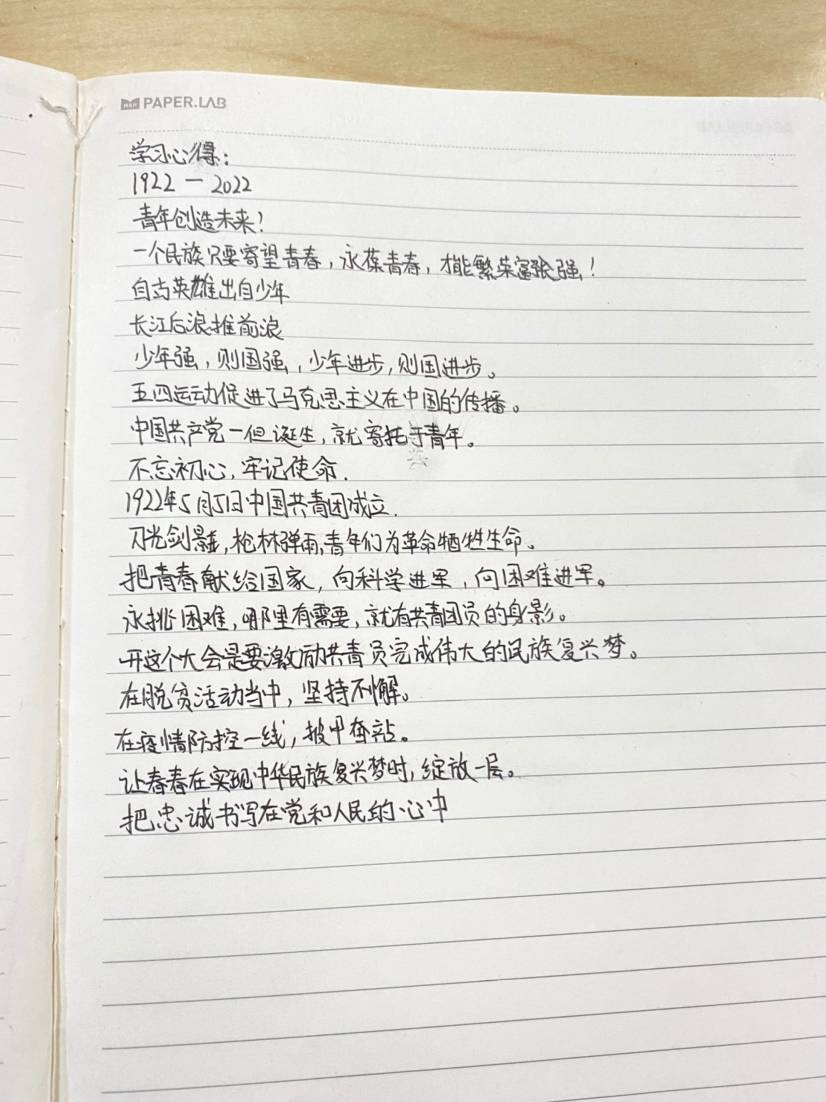 PAPER.LAB
学习心得：
1922 — 2022
青年创造未来！
一个民族只要寄望青春，永葆青春，才能繁荣富张强！
自古英雄出自少年
长江后浪推前浪
少年强，则国强，少年进步，则国进步。
五四运动促进了马克思主义在中国的传播。
中国共产党一但诞生，就寄托于青年。
不忘初心，牢记使命.
1922年5月5日中国共青团成立.
刀光剑影，枪林弹雨，青年们为革命牺牲生命。
把青春献给国家，向科学进军，向困难进军。
永挑困难，哪里有需要，就有共青团员的身影。
开这个大会是要激励共青员完成伟大的民族复兴梦。
在脱贫活动当中，坚持不懈。
在疫情防控一线，披甲奔站。
让春春在实现中华民族复兴梦时，绽放一层。
把忠诚书写在党和人民的心中